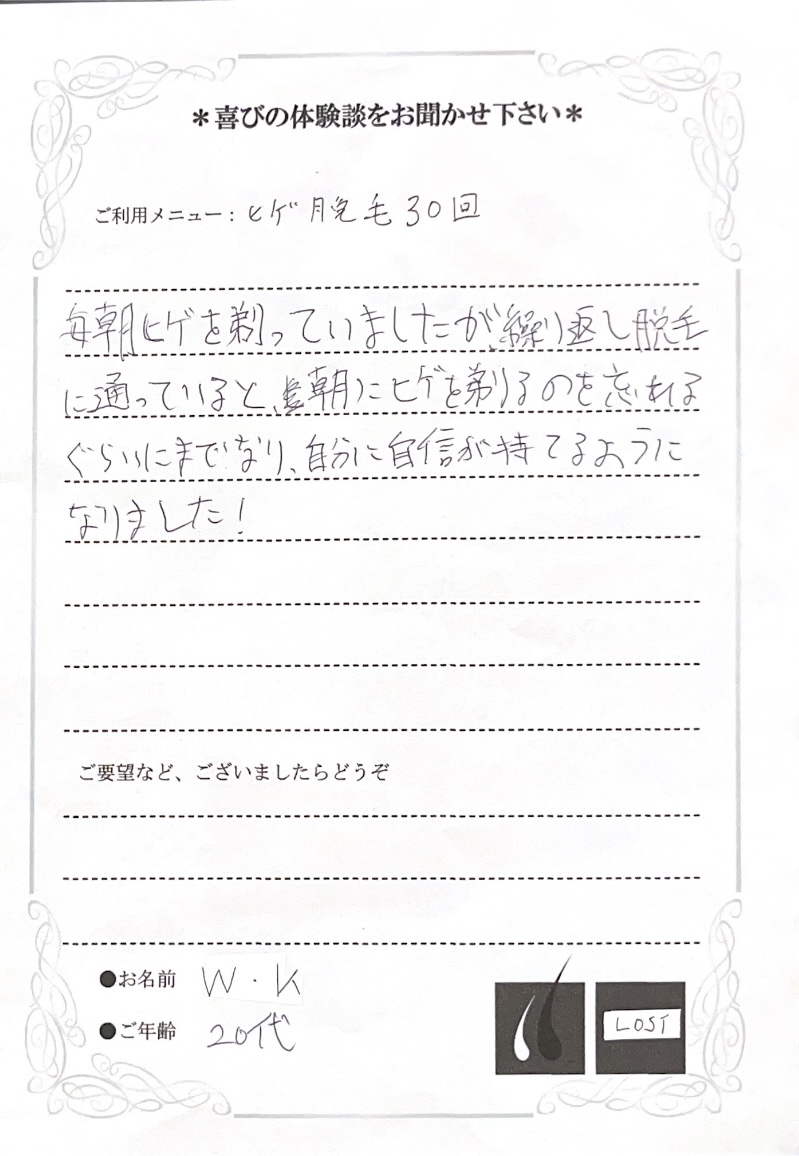 ＊喜びの体験談をお聞かせ下さい＊
ご利用メニュー：ヒゲ脱毛30回
毎朝ヒゲを剃っていましたが、繰り返し脱毛
に通っていると、毎朝にヒゲを剃りるのを忘れる
ぐらいにまでなり、自分に自信が持てるように
なりました！
ご要望など、ございましたらどうぞ
●お名前 W・K
●ご年齢 20代
LOST